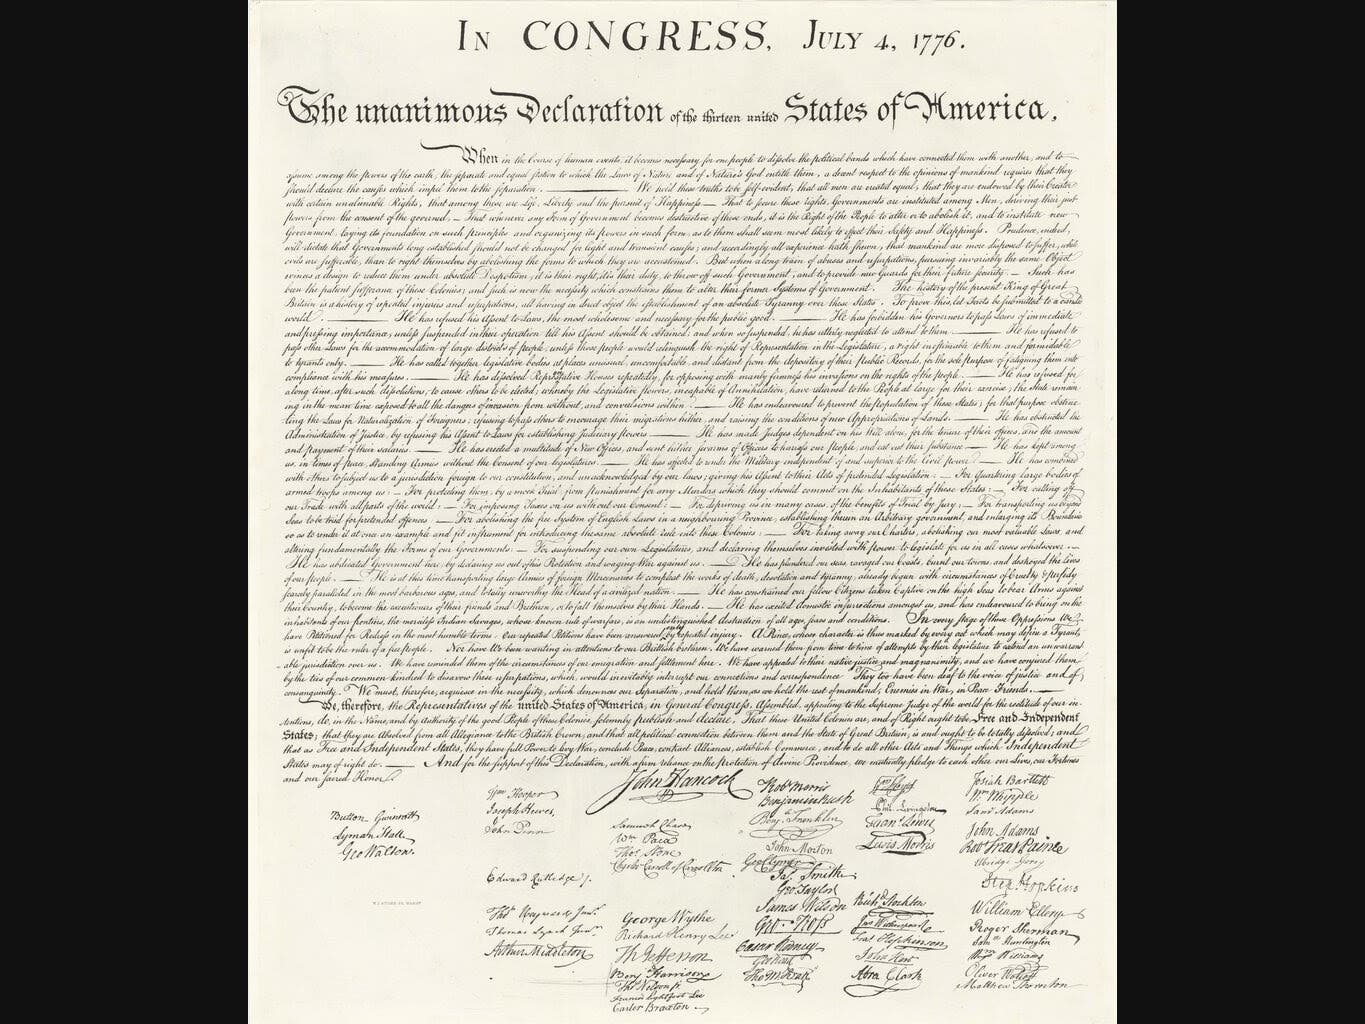 IN CONGRESS, JULY 4, 1776.
The unanimous Declaration of the thirteen united States of America,
When in the Course of human events, it becomes necessary for one people to dissolve the political bands which have connected them with another, and to
assume among the powers of the earth, the separate and equal station to which the Laws of Nature and of Nature's God entitle them, a decent respect to the opinions of mankind requires that they
should declare the causes which impel them to the separation. ———— We hold these truths to be self-evident, that all men are created equal, that they are endowed by their Creator
with certain unalienable Rights, that among these are Life, Liberty and the pursuit of Happiness.— That to secure these rights, Governments are instituted among Men, deriving their just
powers from the consent of the governed, — That whenever any Form of Government becomes destructive of these ends, it is the Right of the People to alter or to abolish it, and to institute new
Government, laying its foundation on such principles and organizing its powers in such form, as to them shall seem most likely to effect their Safety and Happiness. Prudence, indeed,
will dictate that Governments long established should not be changed for light and transient causes; and accordingly all experience hath shewn, that mankind are more disposed to suffer, while
evils are sufferable, than to right themselves by abolishing the forms to which they are accustomed. But when a long train of abuses and usurpations, pursuing invariably the same Object
evinces a design to reduce them under absolute Despotism, it is their right, it is their duty, to throw off such Government, and to provide new Guards for their future security. — Such has
been the patient sufferance of these Colonies; and such is now the necessity which constrains them to alter their former Systems of Government. The history of the present King of Great
Britain is a history of repeated injuries and usurpations, all having in direct object the establishment of an absolute Tyranny over these States. To prove this, let Facts be submitted to a candid
world. ———— He has refused his Assent to Laws, the most wholesome and necessary for the public good. ———— He has forbidden his Governors to pass Laws of immediate
and pressing importance, unless suspended in their operation till his Assent should be obtained; and when so suspended, he has utterly neglected to attend to them. ———— He has refused to
pass other Laws for the accommodation of large districts of people, unless those people would relinquish the right of Representation in the Legislature, a right inestimable to them and formidable
to tyrants only. ———— He has called together legislative bodies at places unusual, uncomfortable, and distant from the depository of their Public Records, for the sole purpose of fatiguing them into
compliance with his measures. ———— He has dissolved Representative Houses repeatedly, for opposing with manly firmness his invasions on the rights of the people. ———— He has refused for
a long time, after such dissolutions, to cause others to be elected; whereby the Legislative powers, incapable of Annihilation, have returned to the People at large for their exercise; the State remain-
ing in the mean time exposed to all the dangers of invasion from without, and convulsions within. ———— He has endeavoured to prevent the population of these States; for that purpose obstruc-
ting the Laws for Naturalization of Foreigners; refusing to pass others to encourage their migrations hither, and raising the conditions of new Appropriations of Lands. ———— He has obstructed the
Administration of Justice, by refusing his Assent to Laws for establishing Judiciary powers. ———— He has made Judges dependent on his Will alone, for the tenure of their offices, and the amount
and payment of their salaries. ———— He has erected a multitude of New Offices, and sent hither swarms of Officers to harrass our people, and eat out their substance. ———— He has kept among
us, in times of peace, Standing Armies without the Consent of our legislatures. ———— He has affected to render the Military independent of and superior to the Civil power. ———— He has combined
with others to subject us to a jurisdiction foreign to our constitution, and unacknowledged by our laws; giving his Assent to their Acts of pretended Legislation: — For Quartering large bodies of
armed troops among us: — For protecting them, by a mock Trial, from punishment for any Murders which they should commit on the Inhabitants of these States: — For cutting off
our Trade with all parts of the world: — For imposing Taxes on us without our Consent: — For depriving us in many cases, of the benefits of Trial by Jury: — For transporting us beyond
Seas to be tried for pretended offences — For abolishing the free System of English Laws in a neighbouring Province, establishing therein an Arbitrary government, and enlarging its Boundaries
so as to render it at once an example and fit instrument for introducing the same absolute rule into these Colonies: — For taking away our Charters, abolishing our most valuable Laws, and
altering fundamentally the Forms of our Governments: — For suspending our own Legislatures, and declaring themselves invested with power to legislate for us in all cases whatsoever. —
He has abdicated Government here, by declaring us out of his Protection and waging War against us. — He has plundered our seas, ravaged our Coasts, burnt our towns, and destroyed the lives
of our people. — He is at this time transporting large Armies of foreign Mercenaries to compleat the works of death, desolation and tyranny, already begun with circumstances of Cruelty & perfidy
scarcely paralleled in the most barbarous ages, and totally unworthy the Head of a civilized nation. — He has constrained our fellow Citizens taken Captive on the high Seas to bear Arms against
their Country, to become the executioners of their friends and Brethren, or to fall themselves by their Hands. — He has excited domestic insurrections amongst us, and has endeavoured to bring on the
inhabitants of our frontiers, the merciless Indian Savages, whose known rule of warfare, is an undistinguished destruction of all ages, sexes and conditions. In every stage of these Oppressions We
have Petitioned for Redress in the most humble terms: Our repeated Petitions have been answered only by repeated injury. A Prince, whose character is thus marked by every act which may define a Tyrant,
is unfit to be the ruler of a free people. Nor have We been wanting in attentions to our Brittish brethren. We have warned them from time to time of attempts by their legislature to extend an unwarrant-
able jurisdiction over us. We have reminded them of the circumstances of our emigration and settlement here. We have appealed to their native justice and magnanimity, and we have conjured them
by the ties of our common kindred to disavow these usurpations, which, would inevitably interrupt our connections and correspondence. They too have been deaf to the voice of justice and of
consanguinity. We must, therefore, acquiesce in the necessity, which denounces our Separation, and hold them, as we hold the rest of mankind, Enemies in War, in Peace Friends. ————
We, therefore, the Representatives of the united States of America, in General Congress, Assembled, appealing to the Supreme Judge of the world for the rectitude of our in-
tentions, do, in the Name, and by Authority of the good People of these Colonies, solemnly publish and declare, That these United Colonies are, and of Right ought to be Free and Independent
States; that they are Absolved from all Allegiance to the British Crown, and that all political connection between them and the State of Great Britain, is and ought to be totally dissolved; and
that as Free and Independent States, they have full Power to levy War, conclude Peace, contract Alliances, establish Commerce, and to do all other Acts and Things which Independent
States may of right do. ———— And for the support of this Declaration, with a firm reliance on the protection of divine Providence, we mutually pledge to each other our Lives, our Fortunes
and our sacred Honor.
Button Gwinnett
Lyman Hall
Geo Walton.
Wm Hooper
Joseph Hewes,
John Penn
Edward Rutledge /.
Thos Heyward Junr.
Thomas Lynch Junr.
Arthur Middleton
John Hancock
Samuel Chase
Wm Paca
Thos Stone
Charles Carroll of Carrollton
George Wythe
Richard Henry Lee
Th Jefferson
Benj Harrison
Thos Nelson jr.
Francis Lightfoot Lee
Carter Braxton
Robt Morris
Benjamin Rush
Benj. Franklin
John Morton
Geo Clymer
Jas. Smith
Geo. Taylor
James Wilson
Geo. Ross
Caesar Rodney
Geo Read
Tho M:Kean
Wm Floyd
Phil. Livingston
Frans. Lewis
Lewis Morris
Richd. Stockton
Jno Witherspoon
Fras. Hopkinson
John Hart
Abra Clark
Josiah Bartlett
Wm Whipple
Saml Adams
John Adams
Robt Treat Paine
Elbridge Gerry
Step. Hopkins
William Ellery
Roger Sherman
Sam el Huntington
Wm Williams
Oliver Wolcott
Matthew Thornton